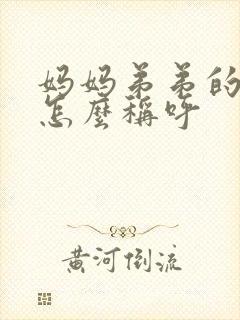 妈妈弟弟的
怎麼稱呼
黄河倒流